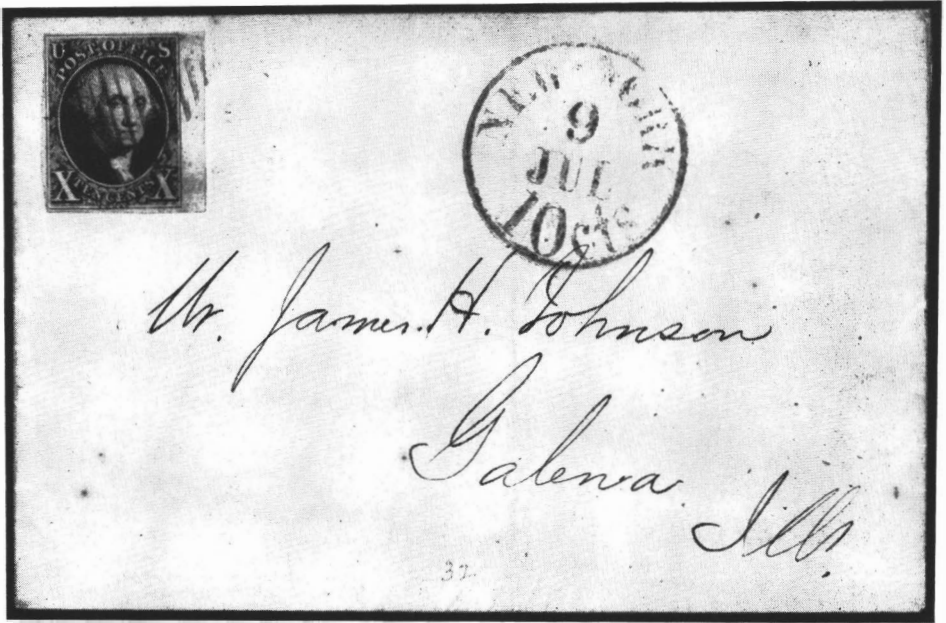 U S
POST OFFICE
X TEN CENTS X
NEW-YORK
9
JUL
10cts
Mr. James. H. Johnson
Galena
Ills.
32